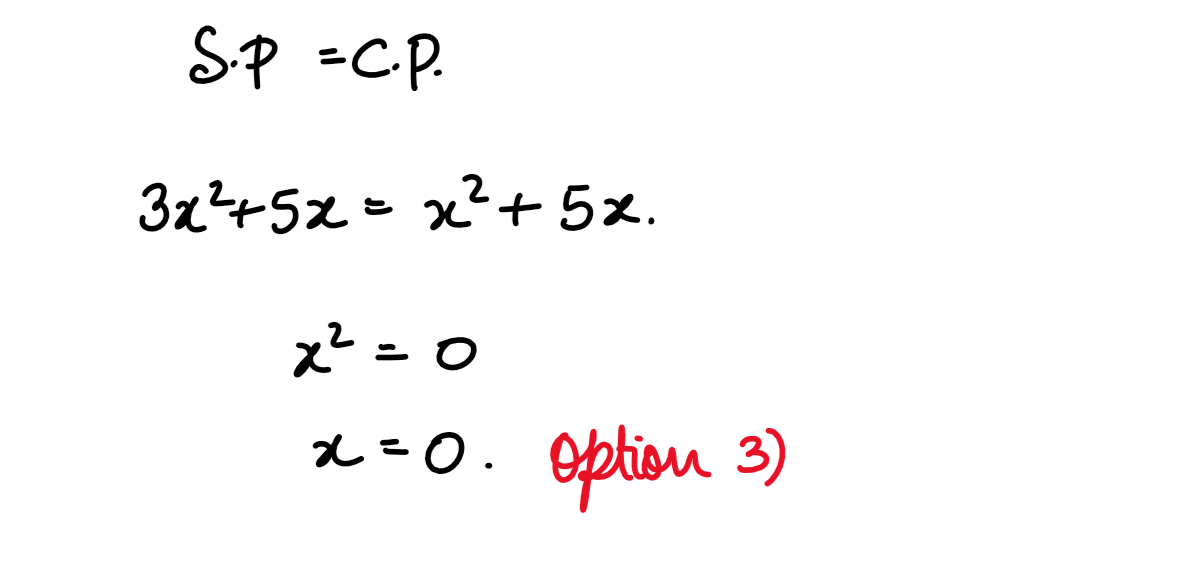 S.P = C.P.
3x²+5x = x²+5x.
x² = 0
x = 0. Option 3)